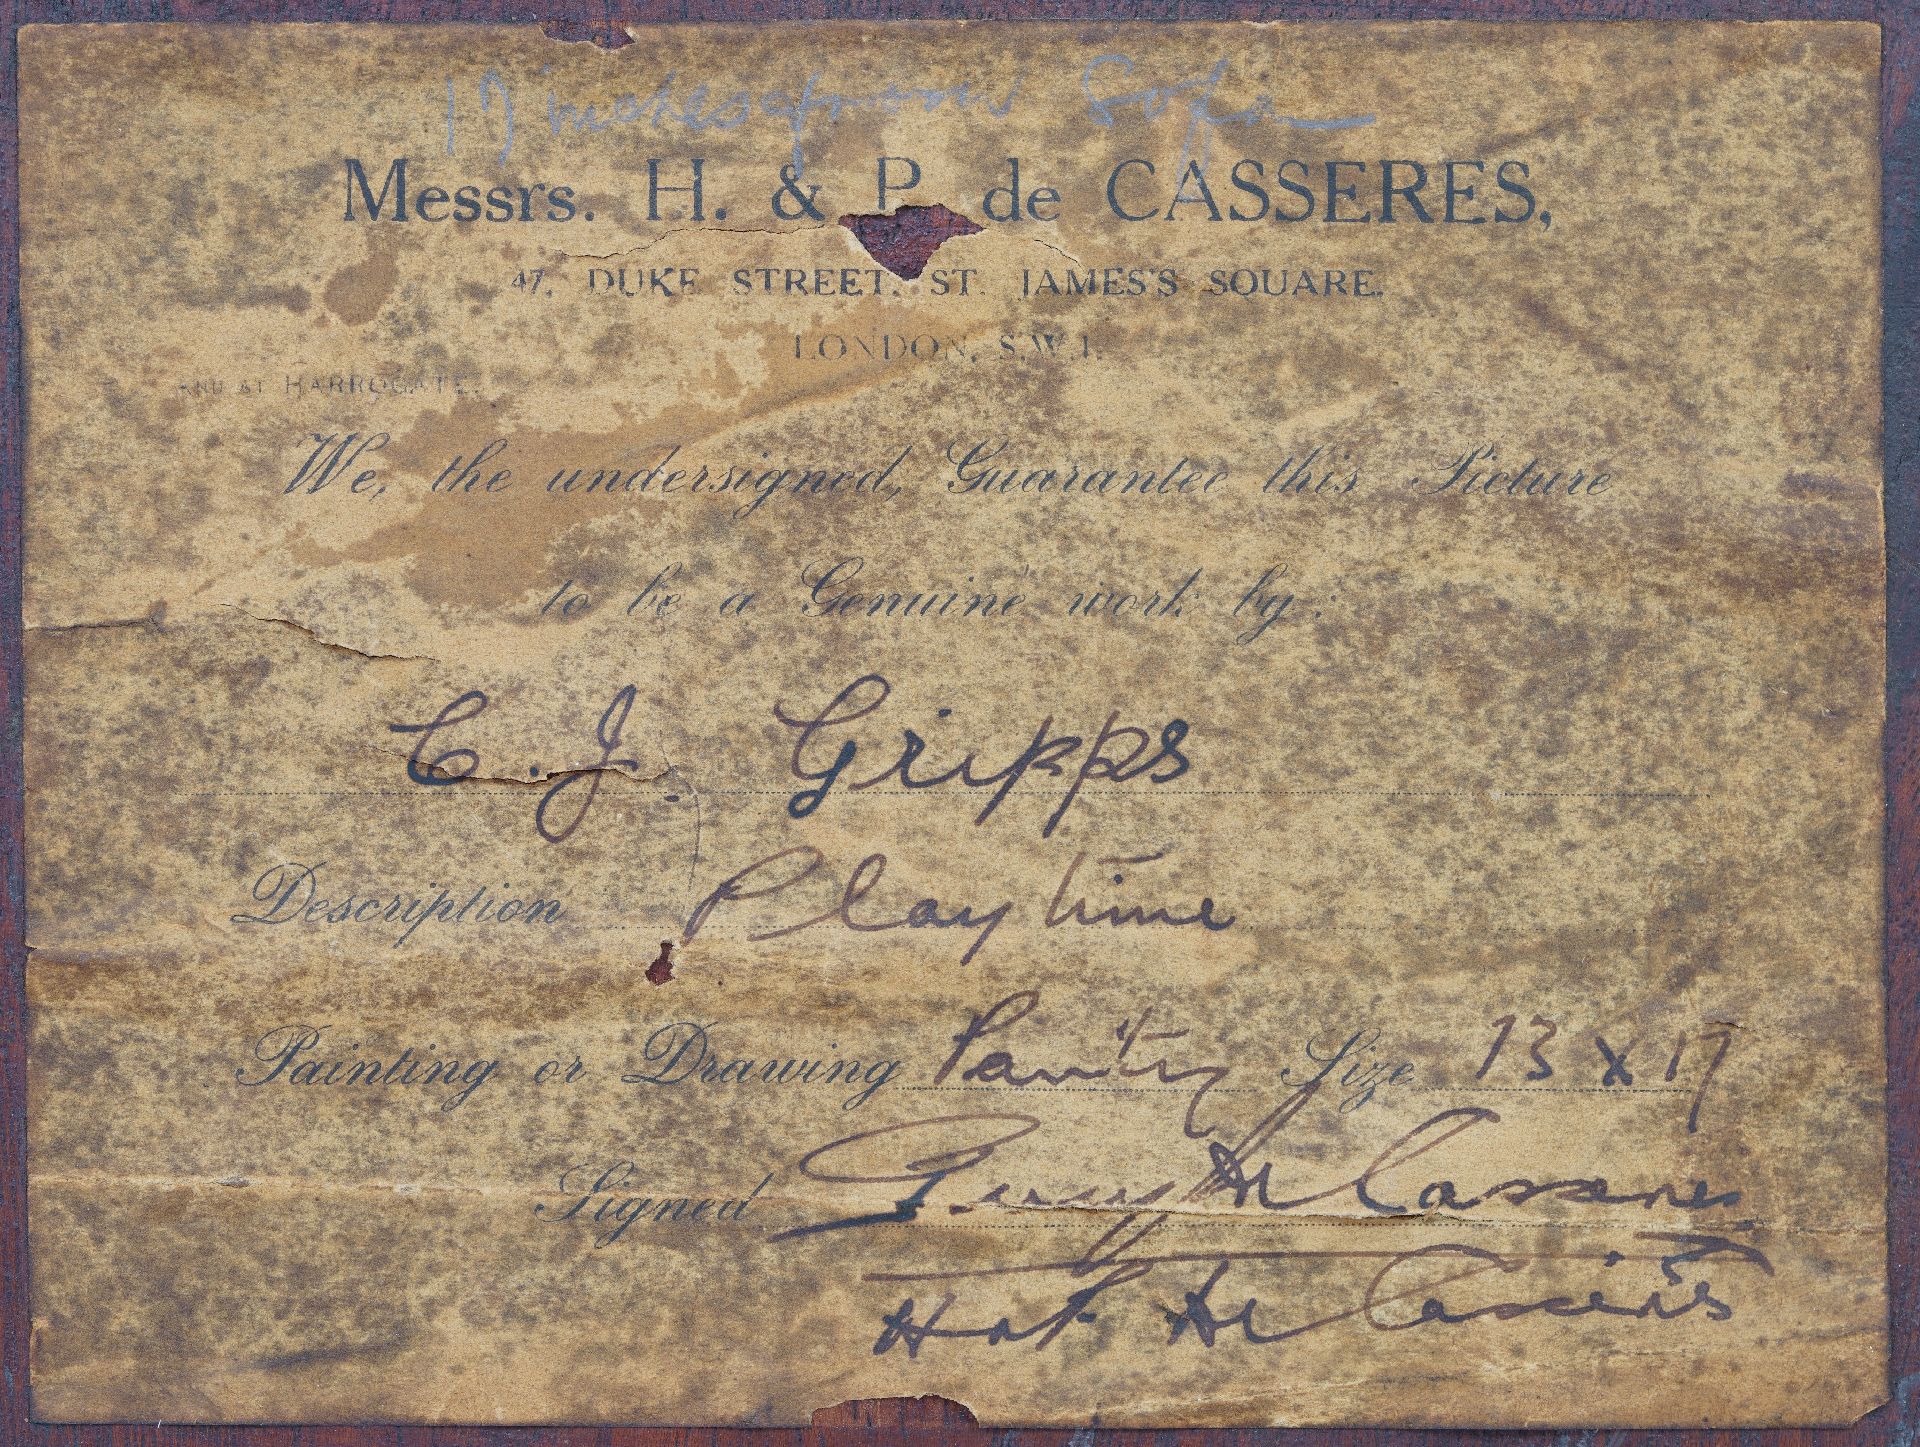 17 inches from Sofa
Messrs. H. & P. de CASSERES,
47, DUKE STREET, ST. JAMES'S SQUARE,
LONDON, S.W.1.
AND AT HARROGATE.
We, the undersigned, Guarantee this Picture
to be a Genuine work by:
C. J. Gripps
Description Playtime
Painting or Drawing Painting Size 13 x 17
Signed de Casseres
H de Casseres